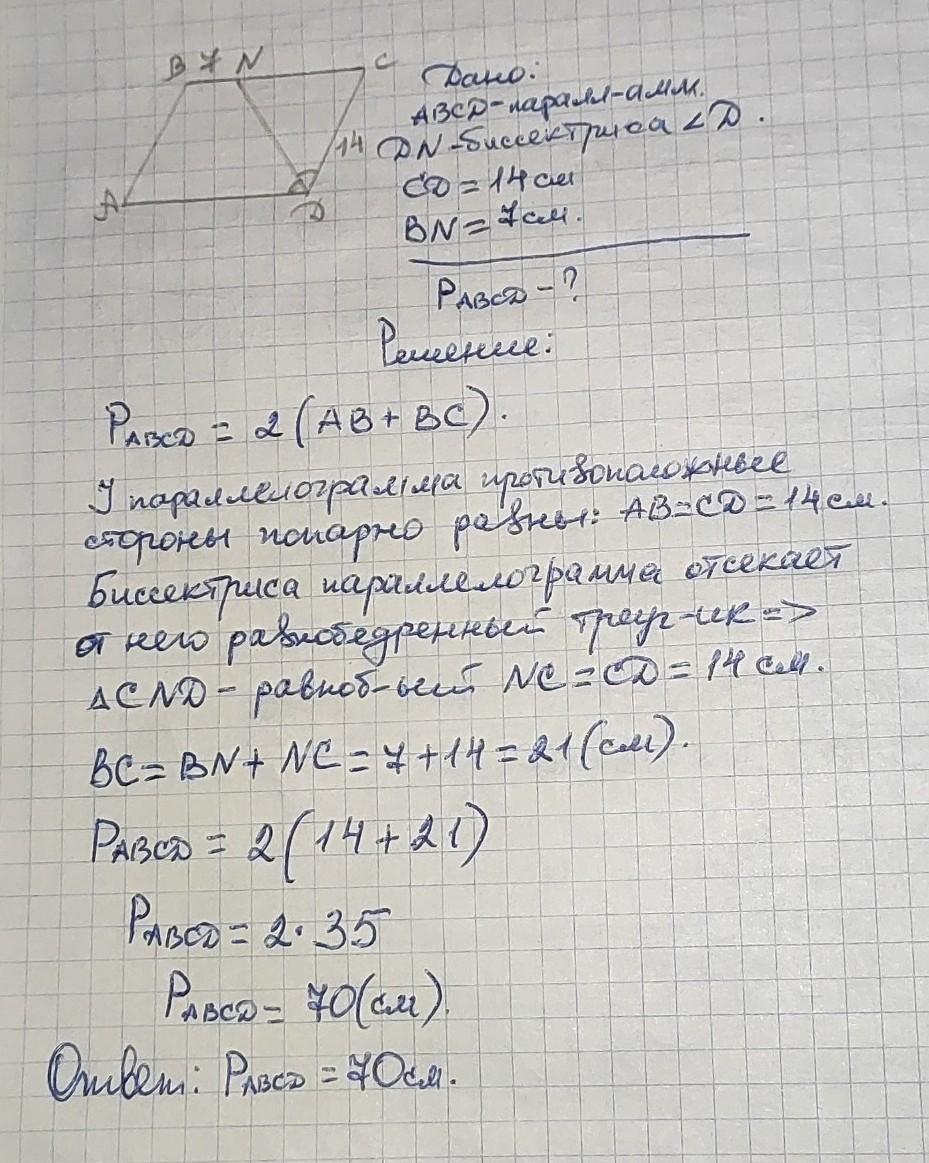 B 7 N C
14
A D
Дано:
ABCD-паралл-амм.
DN-биссектриса ∠D.
CD = 14 см
BN = 7 см.
PABCD - ?
Решение:
PABCD = 2(AB + BC).
У параллелограмма противоположные
стороны попарно равны: AB=CD=14 см.
Биссектриса параллелограмма отсекает
от него равнобедренный треуг-ик =>
△CND - равноб-ый NC = CD = 14 см.
BC = BN + NC = 7 + 14 = 21 (см).
PABCD = 2(14 + 21)
PABCD = 2 · 35
PABCD = 70 (см).
Ответ: PABCD = 70 см.